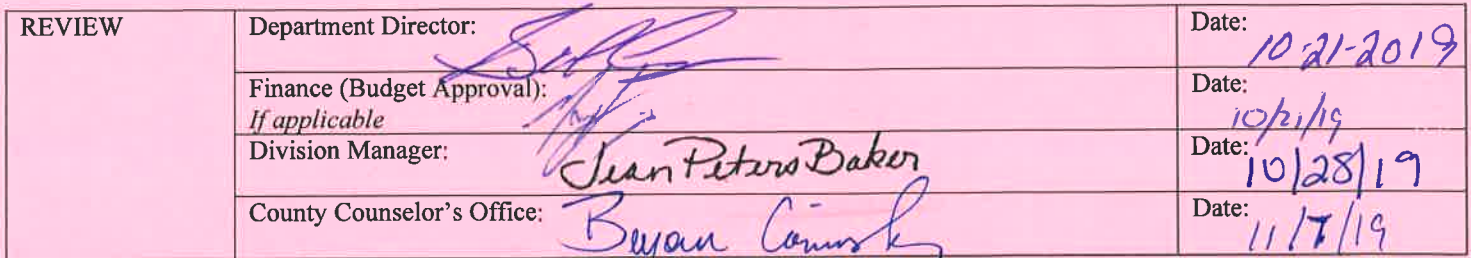 REVIEW
Department Director:
Date:
10-21-2019
Finance (Budget Approval):
If applicable
Date:
10/21/19
Division Manager: Jean Peters Baker
Date:
10/28/19
County Counselor's Office: Bryan
Date:
11/7/19